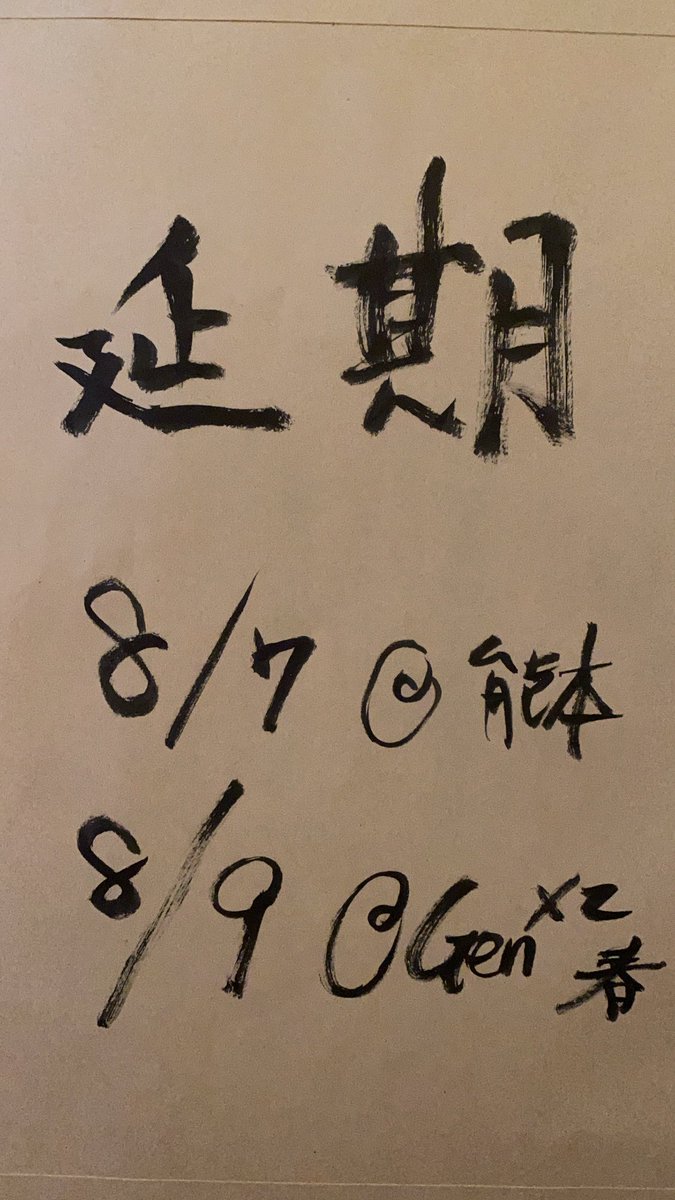 延期
8/7 @ 能本
8/9 @Gen×2
春